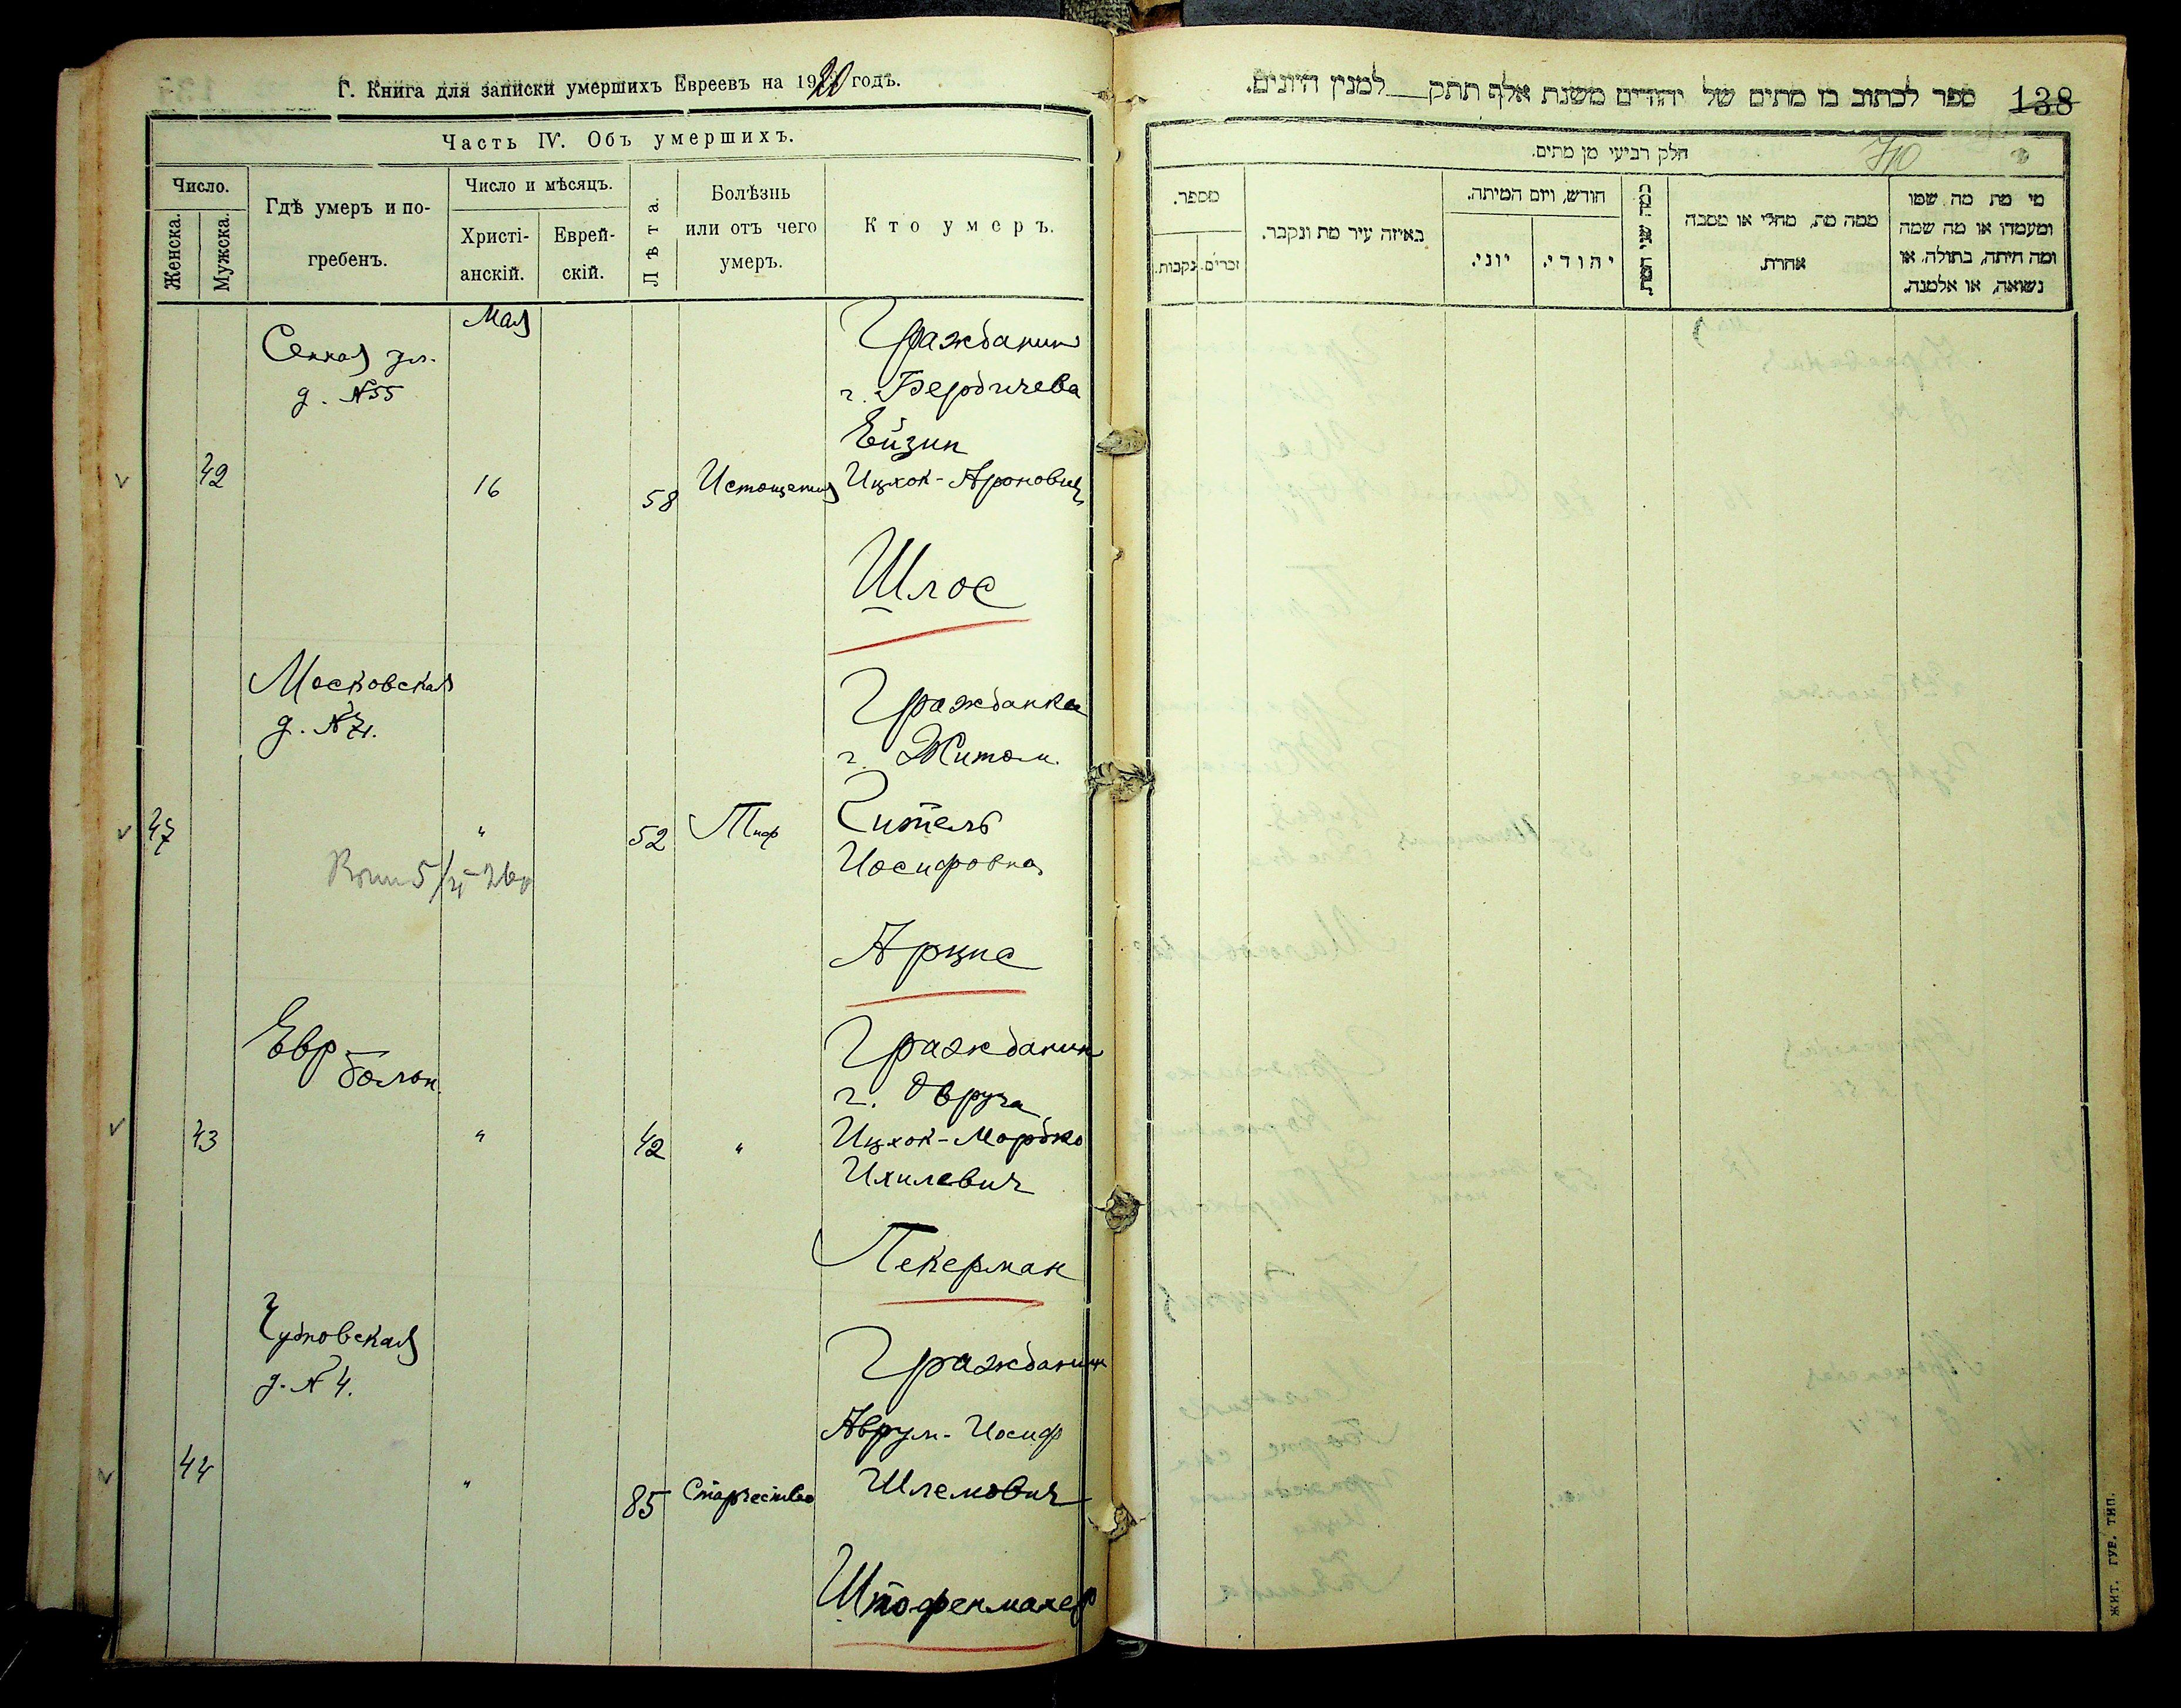 Г. Книга для записки умершихъ Евреевъ на 1920 годъ.
Часть IV. Объ умершихъ.
Число.
Женска.
Мужска.
Гдѣ умеръ и по-
гребенъ.
Число и мѣсяцъ.
Христі-
анскій.
Еврей-
скій.
Лѣта.
Болѣзнь
или отъ чего
умеръ.
Кто умеръ.
Мая
Сенная ул.
д. №55
42
16
58
Истощения
Гражданин
г. Бердичева
Ейзик
Ицхок-Аронович
Шлос
Московская
д. №
47
"
52
Тиф
Гражданка
г. Житом.
Гитель
Иосифовна
Арцис
Копи 5/
Евр
больн.
43
"
42
"
Гражданин
г. Овруча
Ицхок-Мордко
Ихилевич
Пекерман
Чудновская
д. № 4.
44
"
85
Старчество
Гражданин
Аврум-Иосиф
Шлемович
Штофенмахер
ספר לכתוב בו מתים של יהודים משנת אלף תתק__למנין היונים.
138
חלק רביעי מן מתים.
מספר.
נקבות.
זכרים.
באיזה עיר מת ונקבר.
חודש, ויום המיתה.
יוני.
יהודי.
כמה שני המת.
ממה מת, מחלי או מסבה
אחרת.
מי מת מה שמו
ומעמדו או מה שמה
ומה היתה, בתולה, או
נשואה, או אלמנה.
ЖИТ. ГУБ. ТИП.